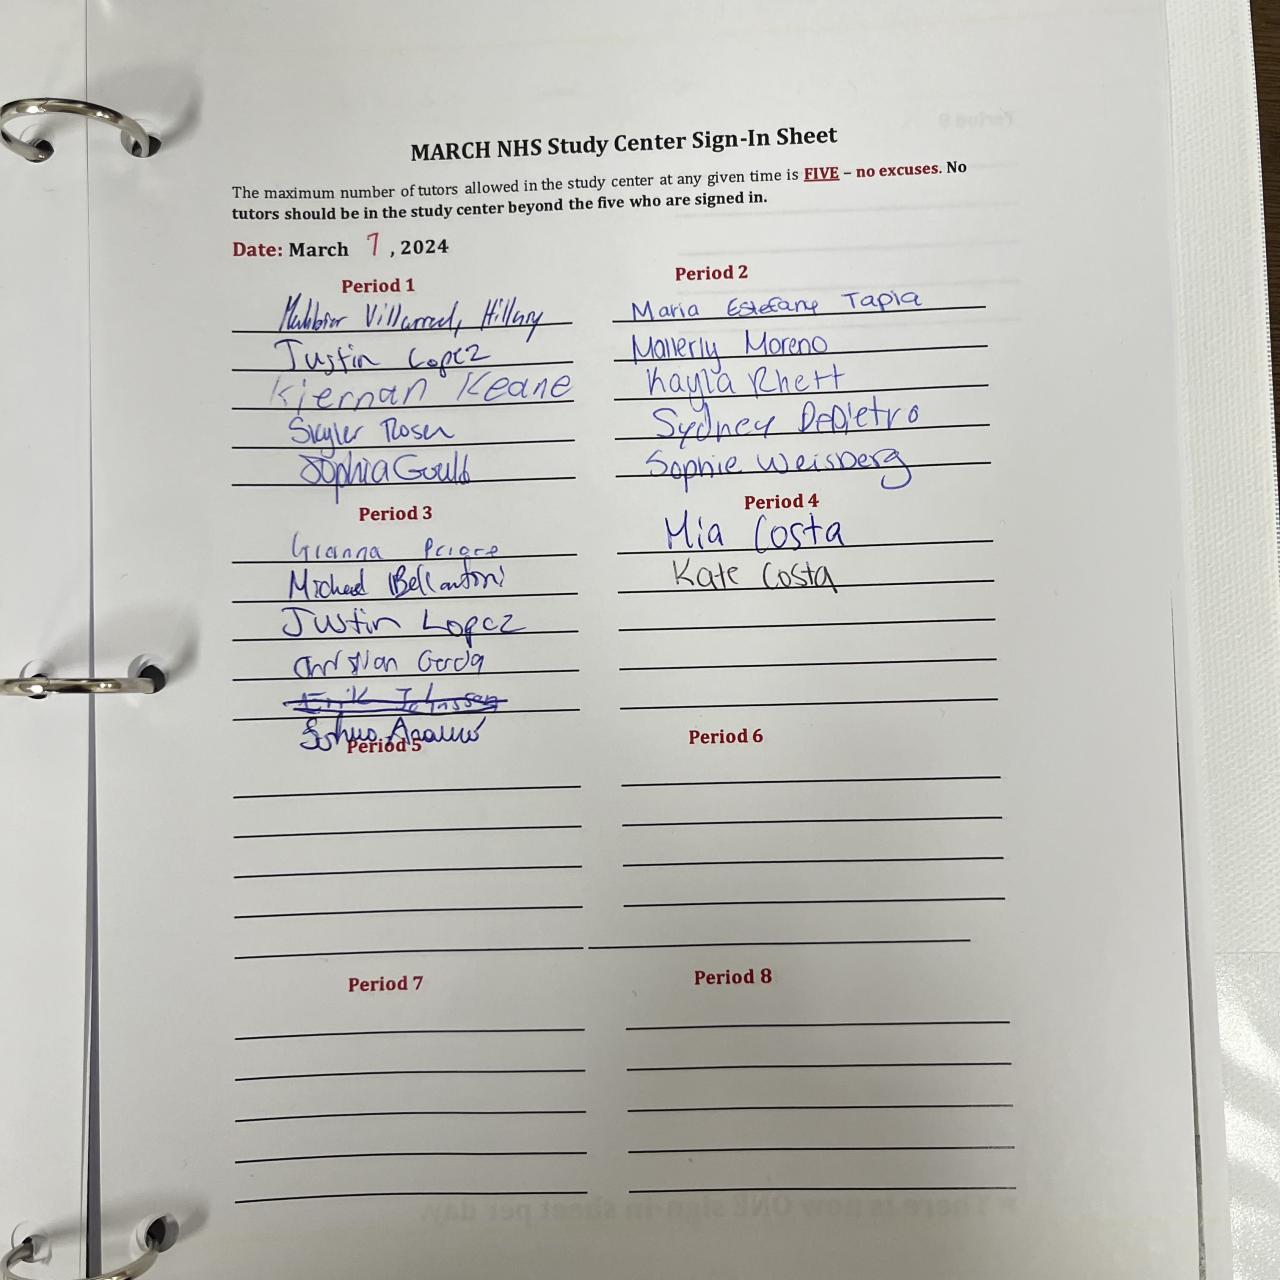 MARCH NHS Study Center Sign-In Sheet
The maximum number of tutors allowed in the study center at any given time is FIVE – no excuses. No
tutors should be in the study center beyond the five who are signed in.
Date: March 7, 2024
Period 1
Villarreal, Hillary
Justin Lopez
Kiernan Keane
Skyler Rosen
Sophia Gould
Period 2
Maria Estefany Tapia
Mallerly Moreno
Kayla Rhett
Sydney DePietro
Sophie Weisberg
Period 3
Gianna
Michael Bellantoni
Justin Lopez
Christian
Erik Johnssen
Period 4
Mia Costa
Kate Costa
Period 5
Period 6
Period 7
Period 8
There is now ONE sign-in sheet per day.